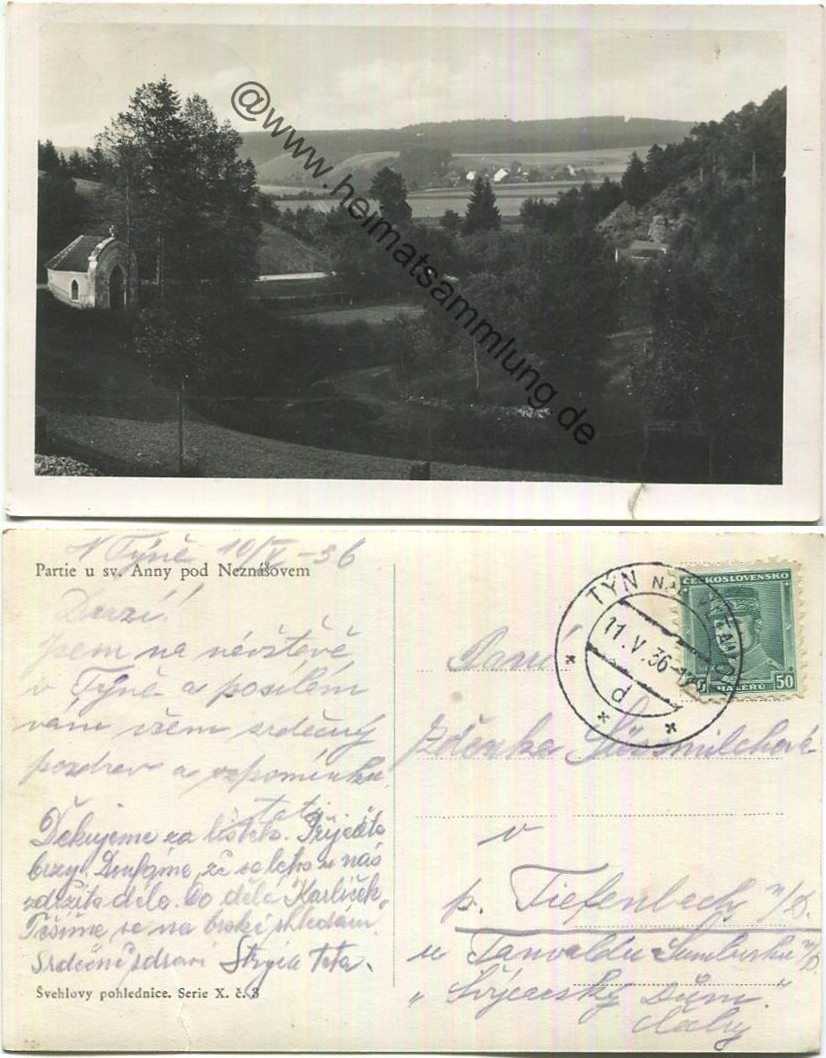 @www.heimatsammlung.de
V Týně 10/V -36
Partie u sv. Anny pod Neznášovem
Drazí!
Jsem na návštěvě
v Týně a posílám
vám všem srdečný
pozdrav a vzpomínku
Děkujeme za lístek. Přijeďte
brzy. Doufáme, že se letos u nás
zdržíte déle. Co dělá Karlíček.
Těšíme se na brzké shledání
Srdečně zdraví Strýc a teta.
Švehlovy pohlednice. Serie X. č. 3
TÝN NAD VLTAVOU
11.V.36
d
ČESKOSLOVENSKO
50
HALÉŘŮ
Paní
Zdenka Süssmilchová
v
p. Tiefenbach n/D.
u Tanvaldu Šumburku n/D
„Švýcarský Dům."
Čechy